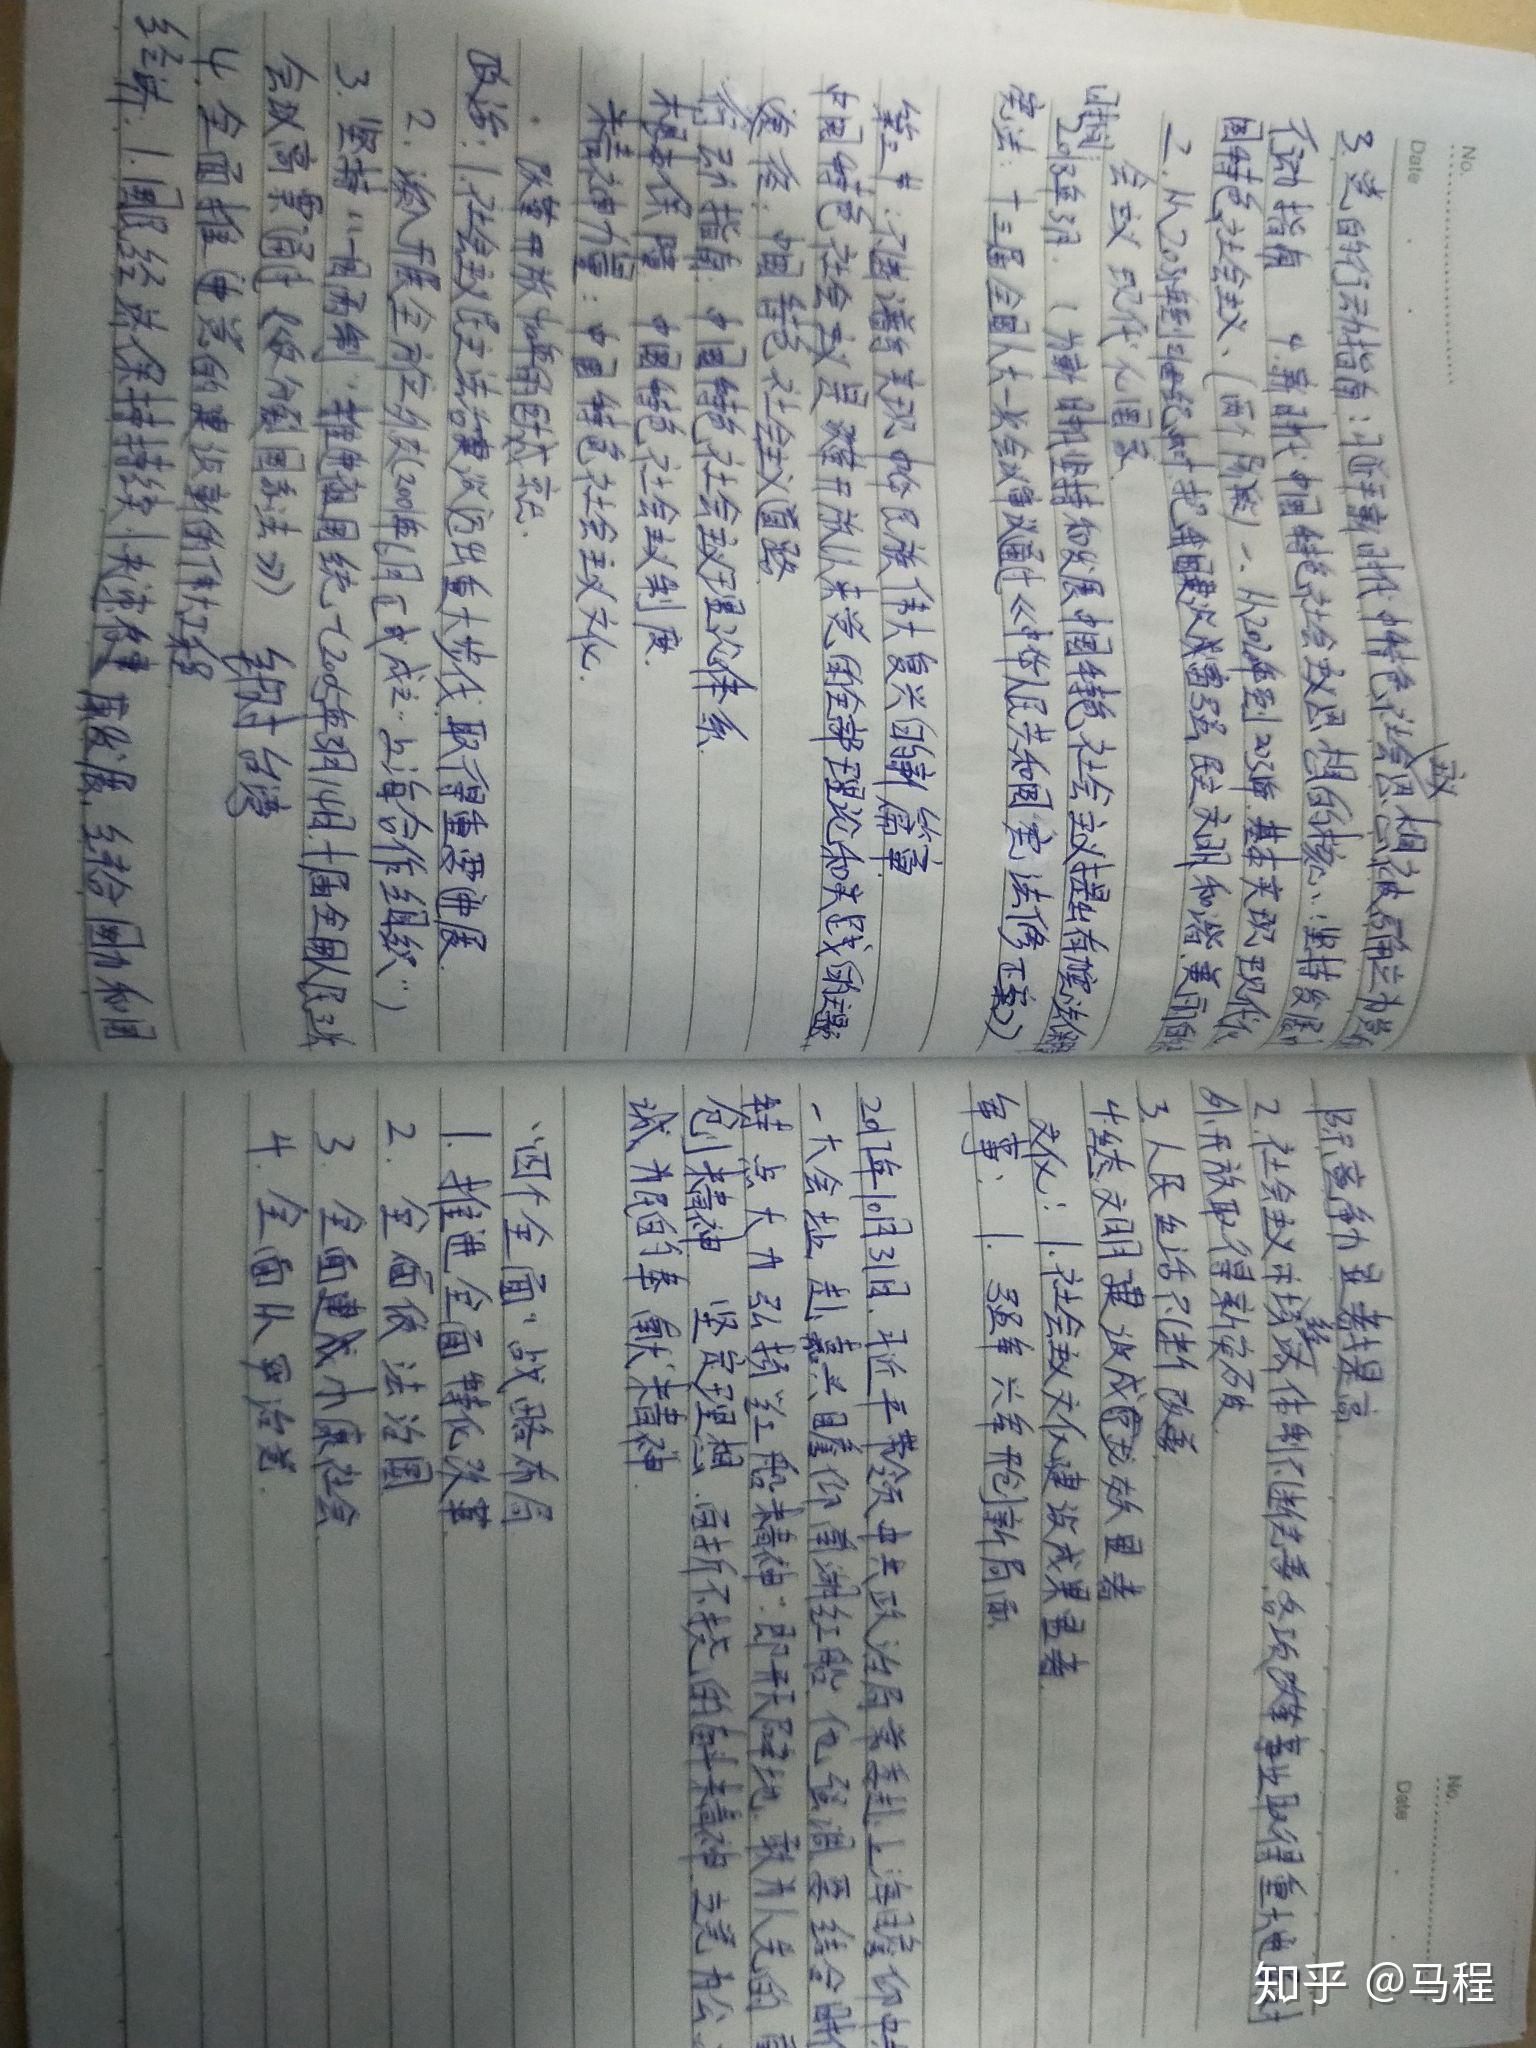 No.
Date
3.党的行动指南:习近平新时代中特色社会主义思想被确立为党的
行动指南 4.新时代中国特色社会主义思想的核心:坚持发展中
国特色社会主义、(两个阶段) 一、从2020年到2035年.基本实现现代化
2.从2035年到本世纪中叶把我国建设成富强民主文明和谐美丽的
会主义现代化国家
时间:2018年3月.(为新时代坚持和发展中国特色社会主义提出有宪法保
宪法:十三届全国人大一次会议审议通过《中华人民共和国宪法修正案》
第二节:不断谱写实现中华民族伟大复兴的新篇章
中国特色社会主义是改革开放以来党的全部理论和实践的主题
途径:中国特色社会主义道路
行动指南:中国特色社会主义理论体系
根本保障 中国特色社会主义制度.
精神力量:中国特色社会主义文化.
改革开放40年的成就.
政治:1.社会主义民主法治建设迈出重大步伐.取得重要进展
2.深入开展全方位外交(2001年6月正式成立“上海合作组织”)
3.坚持“一国两制”推进祖国统一(2005年3月14日.十届全国人民3次
会议高票通过《反分裂国家法》) 针对台湾
4.全面推进党的建设新的伟大工程
经济:1.国民经济保持持续、快速健康发展.综合国力和国
No.
Date
际竞争力显著提高
2.社会主义市场经济体制不断完善.各项改革事业取得重大进 对
外开放取得新突破
3.人民生活不断改善
4.生态文明建设成效显著
文化:1.社会主义文化建设成果显著
军事:1.强军兴军开创新局面
2017年10月31日.习近平带领中共政治局常委赴上海瞻仰中共
一大会址.赴嘉兴瞻仰南湖红船.他强调要结合时代
特点大力弘扬“红船精神”.即开天辟地.敢为人先的首
创精神 坚定理想.百折不挠的奋斗精神.立党为公.
诚为民的奉献精神
“四个全面”战略布局
1.推进全面深化改革
2.全面依法治国
3.全面建成小康社会
4.全面从严治党.
知乎 @马程